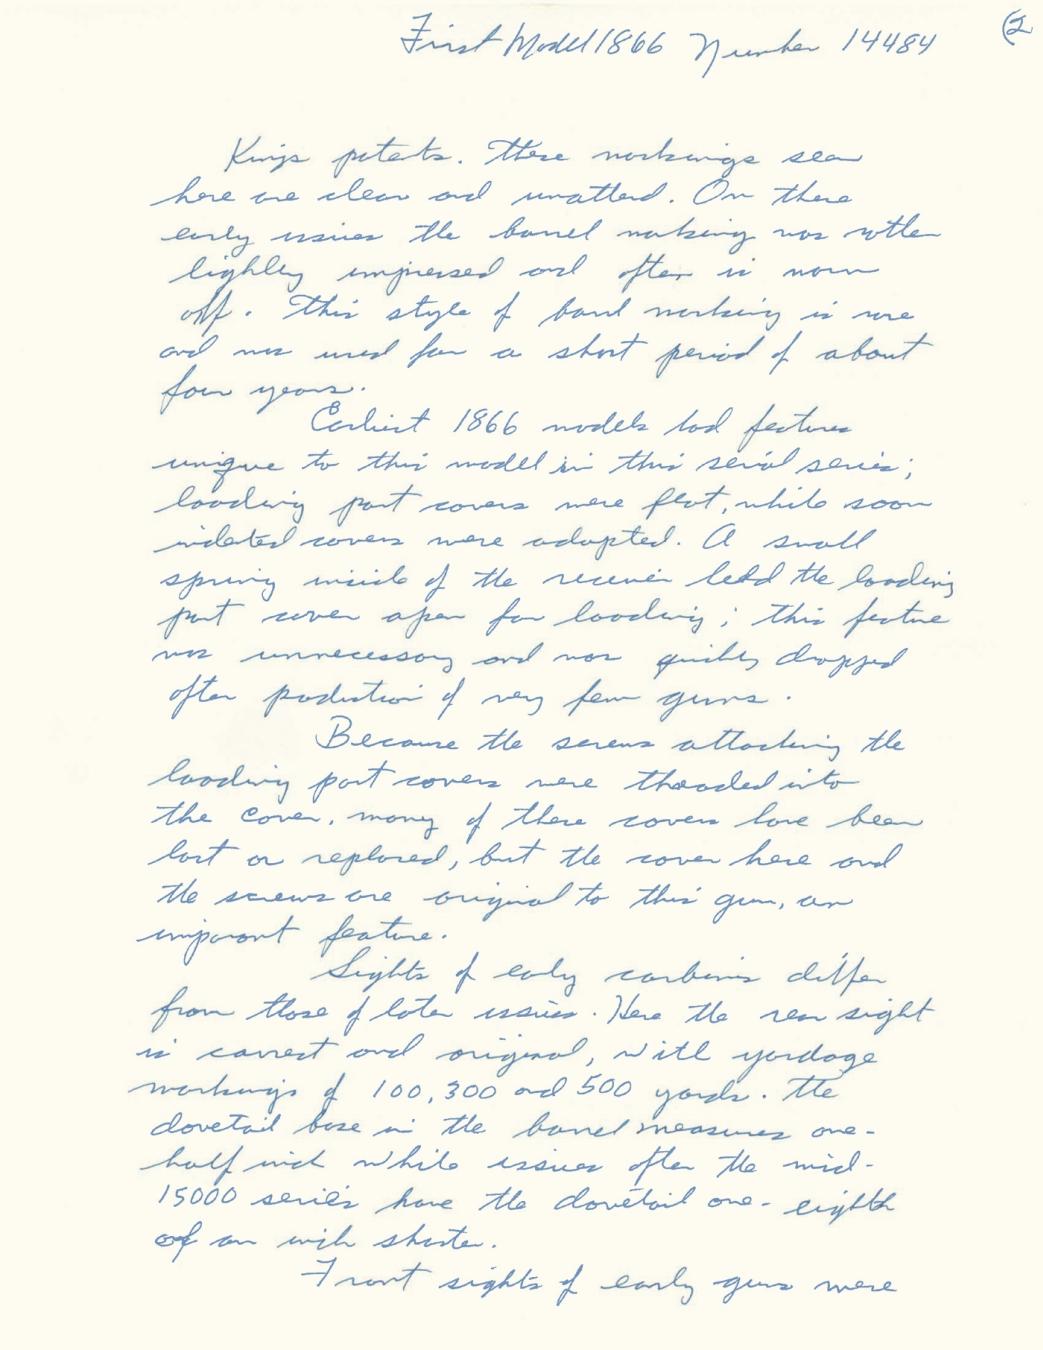 First Model 1866 Number 14484 (2
Kings patents. These markings seen
here are clear and unaltered. On these
early issues the barrel marking was rather
lightly impressed and often is worn
off. This style of barrel marking is rare
and was used for a short period of about
four years.
Earliest 1866 models had features
unique to this model in this serial series;
loading port covers were flat, while soon
indented covers were adopted. A small
spring inside of the receiver held the loading
port cover open for loading; this feature
was unnecessary and was quickly dropped
after production of very few guns.
Because the screws attaching the
loading port covers were threaded into
the cover, many of these covers have been
lost or replaced, but the cover here and
the screws are original to this gun, an
imporant feature.
Sights of early carbines differ
from those of later issues. Here the rear sight
is correct and original, with yardage
markings of 100, 300 and 500 yards. The
dovetail base in the barrel measures one-
half inch while issues after the mid-
15000 series have the dovetail one-eighth
of an inch shorter.
Front sights of early guns were